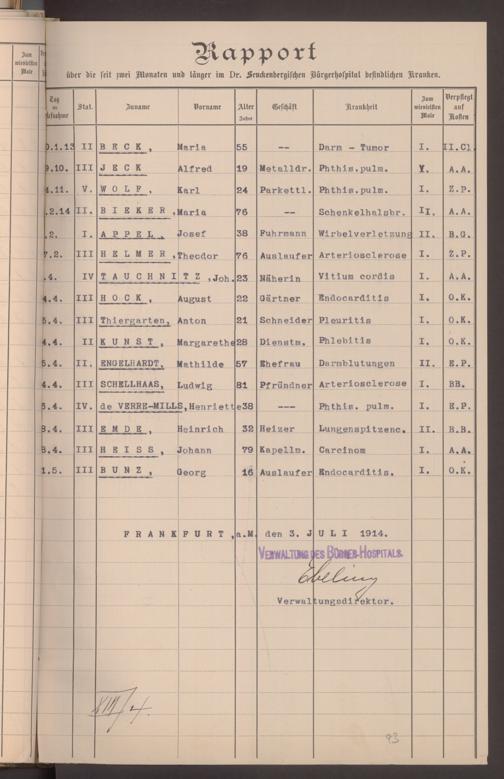 Zum wievielten Male
Rapport
über die seit zwei Monaten und länger im Dr. Senckenbergischen Bürgerhospital befindlichen Kranken.
Tag Stat. Zuname Vorname Alter Jahre Geschäft Krankheit Zum wievielten Male Verpflegt auf Kosten
0.1.13 II BECK, Maria 55 -- Darm - Tumor I. II.Cl.
9.10. III JECK Alfred 19 Metalldr. Phthis.pulm. V. A.A.
4.11. V. WOLF, Karl 24 Parkettl. Phthis.pulm. I. Z.P.
.2.14 II. BIEKER, Maria 76 -- Schenkelhalsbr. II. A.A.
.2. I. APPEL, Josef 38 Fuhrmann Wirbelverletzung II. B.G.
7.2. III HELMER, Theodor 76 Auslaufer Arteriosclerose I. Z.P.
.4. IV TAUCHNITZ, Joh. 23 Näherin Vitium cordis I. A.A.
4.4. III HOCK, August 22 Gärtner Endocarditis I. O.K.
5.4. III Thiergarten, Anton 21 Schneider Pleuritis I. O.K.
4.4. II KUNST, Margarethe 28 Dienstm. Phlebitis I. O.K.
5.4. II. ENGELHARDT, Mathilde 57 Ehefrau Darmblutungen II. E.P.
4.4. III SCHELLHAAS, Ludwig 81 Pfründner Arteriosclerose I. BB.
5.4. IV. de VERRE-MILLS, Henriette 38 --- Phthis. pulm. I. E.P.
8.4. III EMDE, Heinrich 32 Heizer Lungenspitzenc. II. B.B.
8.4. III HEISS, Johann 79 Kapellm. Carcinom I. A.A.
1.5. III BUNZ, Georg 16 Auslaufer Endocarditis. I. O.K.
FRANKFURT, a.M. den 3. JULI 1914.
VERWALTUNG DES BÜRGER-HOSPITALS.
Ebeling
Verwaltungsdirektor.
93